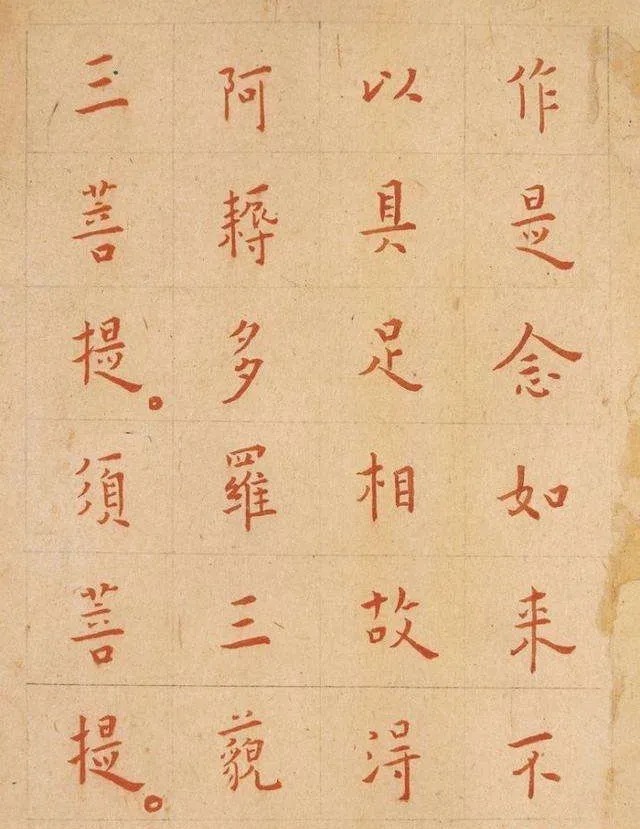 作是念如来不
以具足相故得
阿耨多羅三藐
三菩提。須菩提。